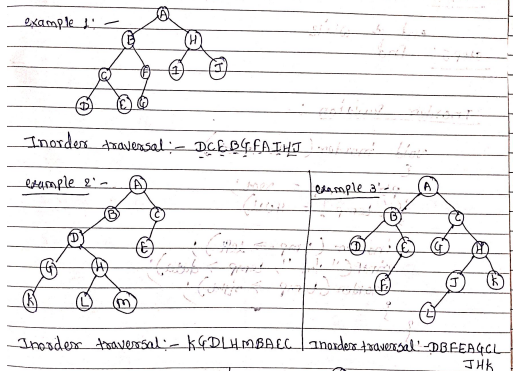 example 1:-
A
B H
C F I J
D E G
Inorder traversal:- DCEBGFAIHJ
example 2:-
A
B C
D E
G H
K L M
Inorder traversal:- KGDLHMBAEC
example 3:-
A
B C
D E G H
F J K
L
Inorder traversal:- DBFEAGCL
JHK